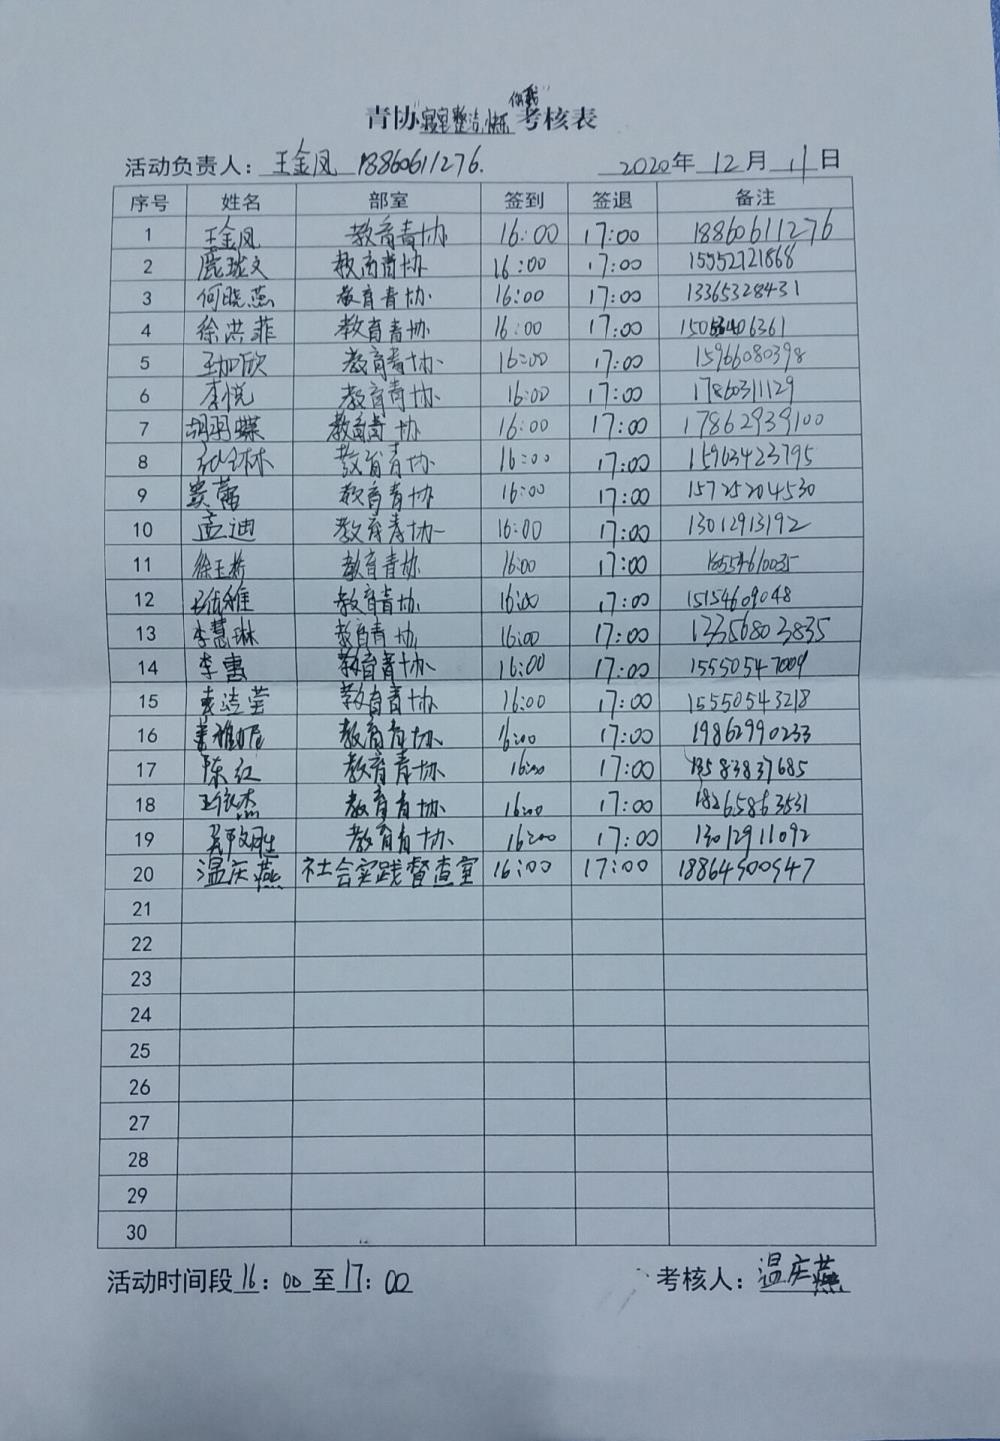 青协"寝室整洁,快乐你我"考核表
活动负责人：王金凤 18860611276. 2020年 12月 11日
序号 姓名 部室 签到 签退 备注
1 王金凤 教育青协 16:00 17:00 18860611276
2 鹿珑文 教育青协 16:00 17:00 15552721868
3 何晓燕 教育青协 16:00 17:00 13365328431
4 徐洪菲 教育青协 16:00 17:00
5 王加欣 教育青协 16:00 17:00 15966080398
6 李悦 教育青协 16:00 17:00 17860311129
7 胡羽蝶 教育青协 16:00 17:00 17862939100
8 教育青协 16:00 17:00 15963423795
9 娄蕾 教育青协 16:00 17:00 15725204530
10 孟迪 教育青协 16:00 17:00 13012913192
11 徐玉娇 教育青协 16:00 17:00 18554610035
12 教育青协 16:00 17:00 15154609048
13 李慧琳 教育青协 16:00 17:00 13356803835
14 李惠 教育青协 16:00 17:00 15550547009
15 袁洁莹 教育青协 16:00 17:00 15550543218
16 教育青协 16:00 17:00 19862990233
17 陈红 教育青协 16:00 17:00 13583837685
18 王依杰 教育青协 16:00 17:00 18265863531
19 教育青协 16:00 17:00 13012911092
20 温庆燕 社会实践督查室 16:00 17:00 18864500547
21
22
23
24
25
26
27
28
29
30
活动时间段16：00至17：00 考核人：温庆燕